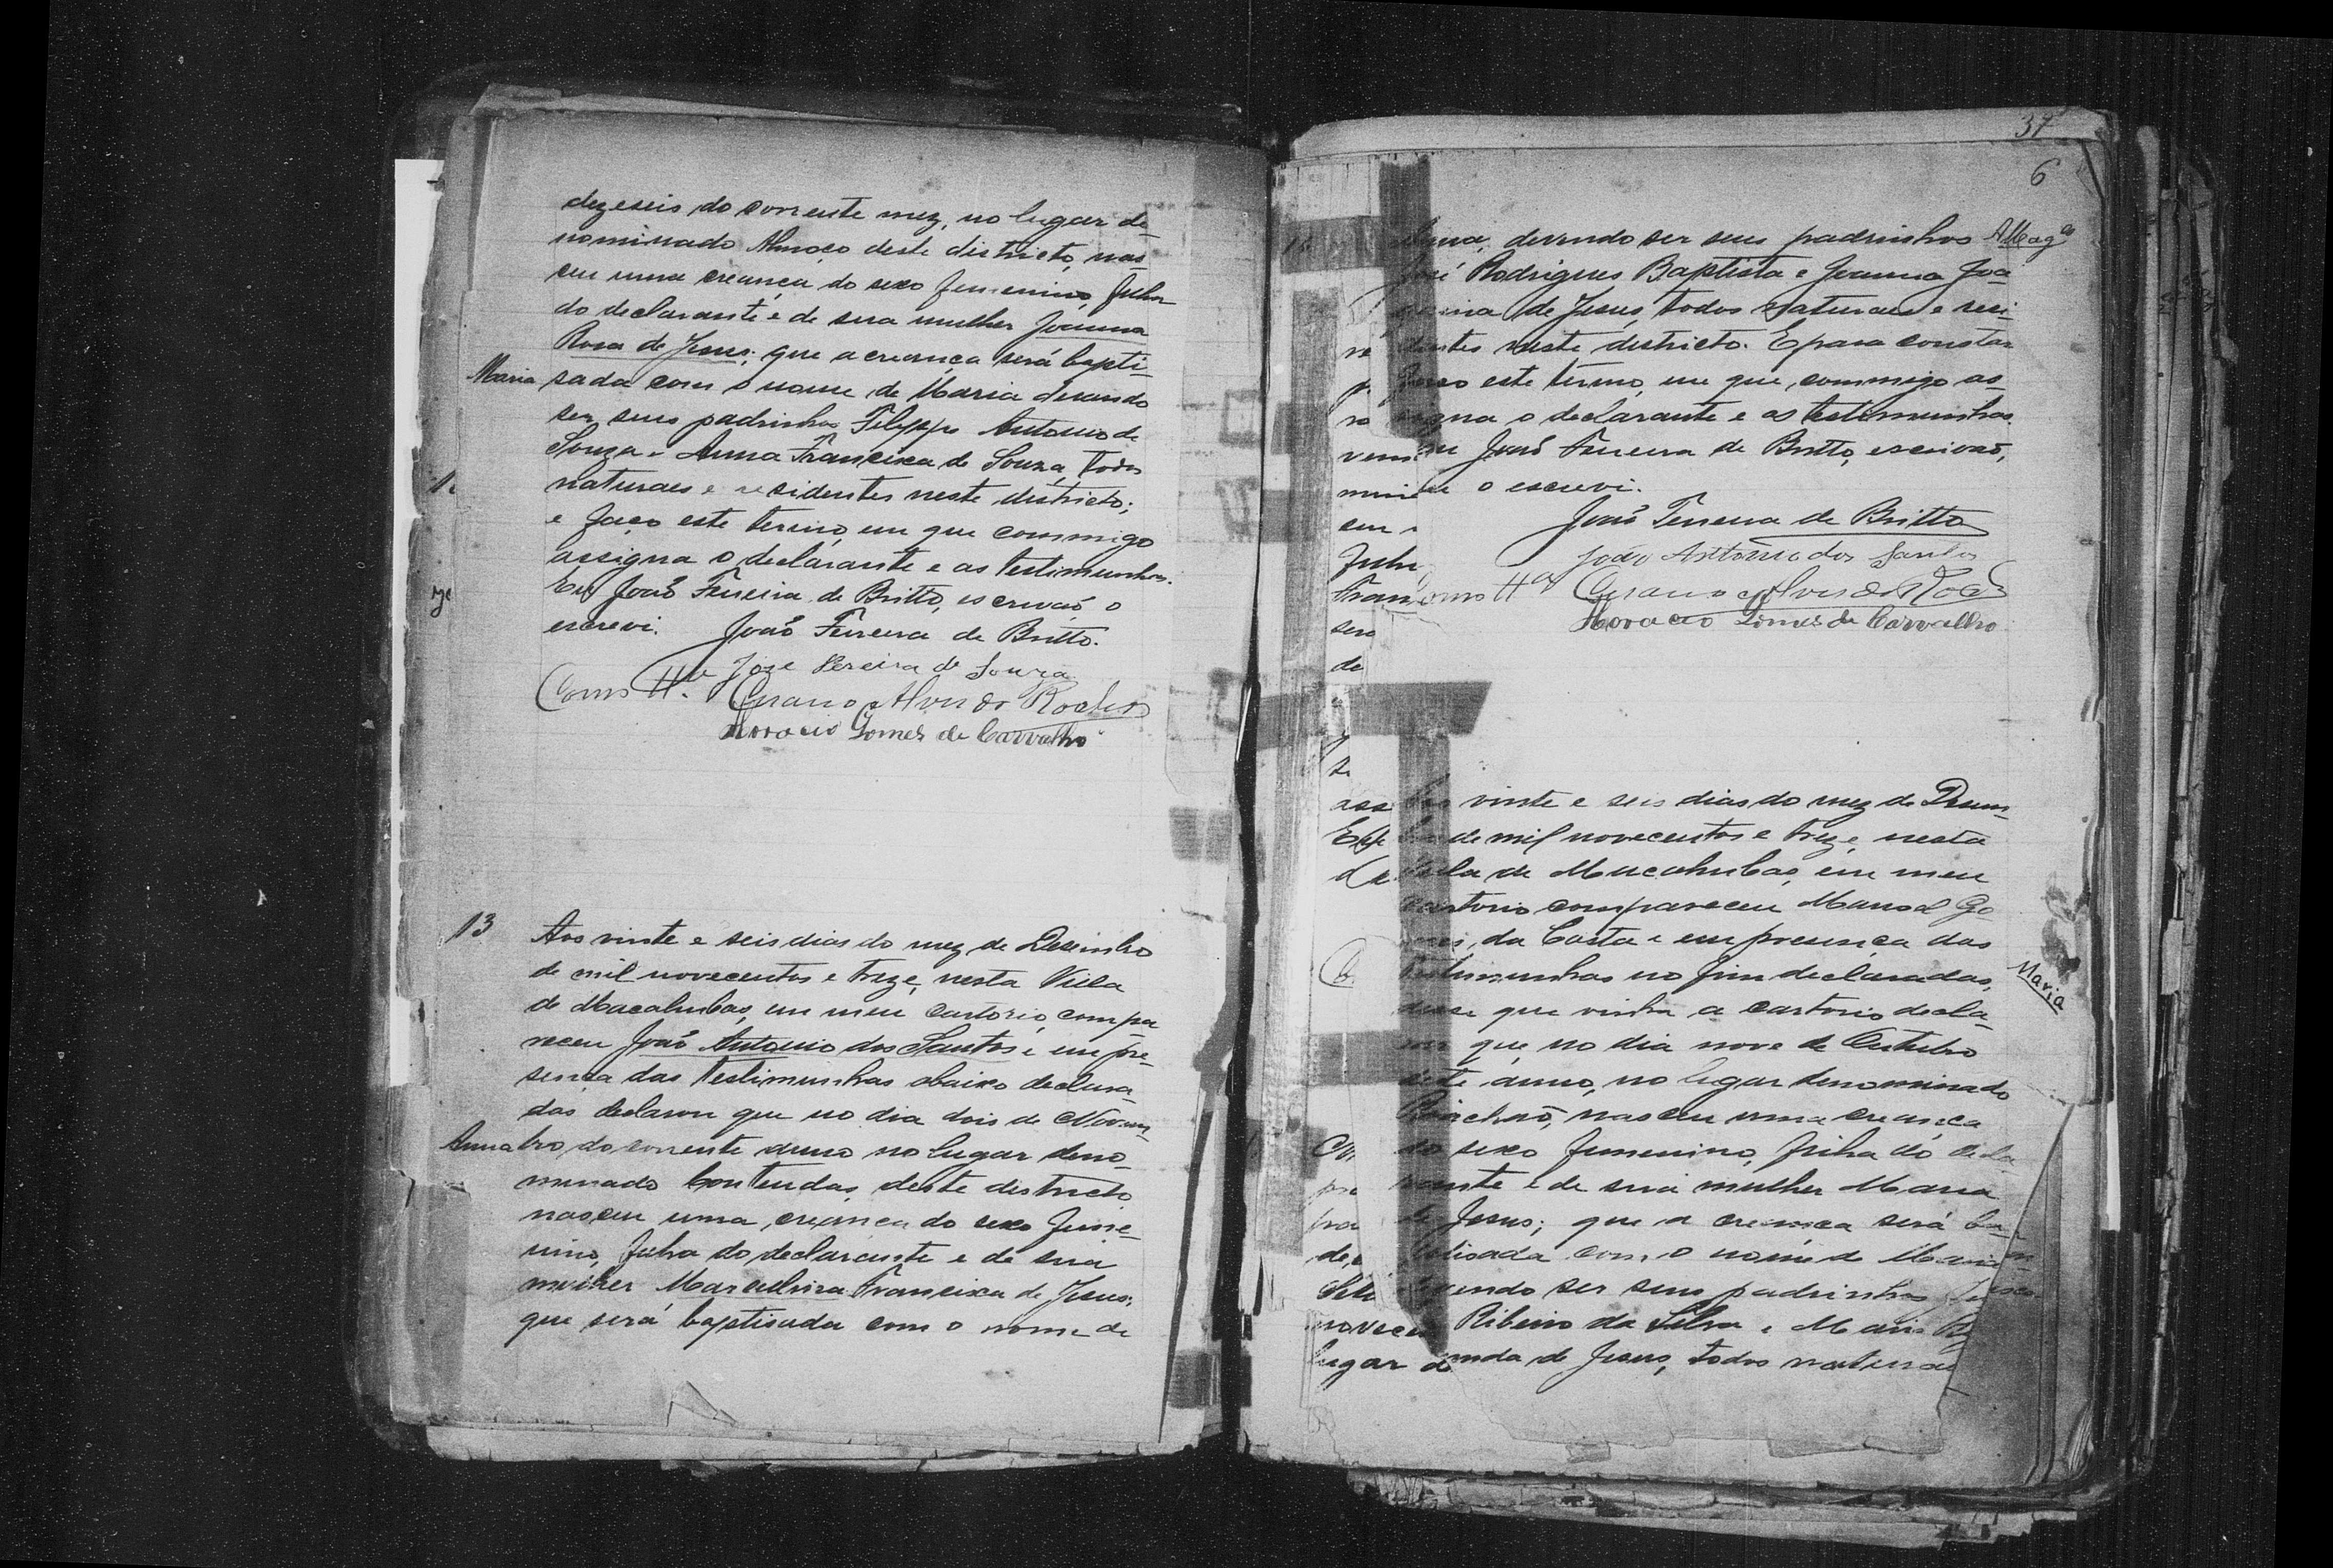 dezeseis do corrente mez, no lugar de-
nominado Almoço deste districto, nas-
ceu uma creança do sexo femenino, filha
do declarante e de sua mulher Joanna
Rosa de Jesus; que a creança será bapti-
Maria
sada com o nome de Maria devendo
ser seus padrinhos Felippe Antonio de
Souza e Anna Francisca de Souza, todos
naturaes e residentes neste districto;
e faço este termo, em que commigo
assigna o declarante e as testimunhas.
Eu João Ferreira de Britto, escrivão o
escrevi. João Ferreira de Britto.
José Pereira de Souza
Como tta. Alves da Rocha
Horacio Gomes de Carvalho
13
Aos vinte e seis dias do mez de Desembro
de mil novecentos e treze, nesta Villa
de Macahubas, em meu cartorio, compa-
receu João Antonio dos Santos e em pre-
sença das testimunhas abaixo declara-
das declarou que no dia dois de Novem-
Anna
bro do corrente anno no lugar deno-
minado Contendas, deste districto,
nasceu uma creança do sexo feme-
nino, filha do declarante e de sua
mulher Marcullina Francisca de Jesus;
que será baptisada com o nome de
37
6
Anna, devendo ser seus padrinhos
José Rodrigues Baptista e Joanna Joa-
de Jesus, todos naturaes e resi-
dentes neste districto. E para constar
faço este termo, em que, commigo as-
signa o declarante e as testimunhas.
Eu João Ferreira de Britto, escrivão,
o escrevi.
João Ferreira de Britto
João Antonio dos Santos
Como tta Alves da Rocha
Horacio Gomes de Carvalho
Aos vinte e seis dias do mez de Desem-
bro de mil novecentos e treze, nesta
Villa de Macahubas, em meu
cartorio compareceu Manoel Go-
mes da Costa e em presença das
testimunhas no fim declaradas,
Maria
disse que vinha a cartorio decla-
rar que no dia nove de Outubro
deste anno, no lugar denominado
Riachão, nasceu uma creança
do sexo femenino, filha do decla-
rante e de sua mulher Maria
de Jesus; que a creança será ba-
ptisada com o nome de Maria
devendo ser seus padrinhos
Ribeiro da Silva e Maria
de Jesus, todos naturaes